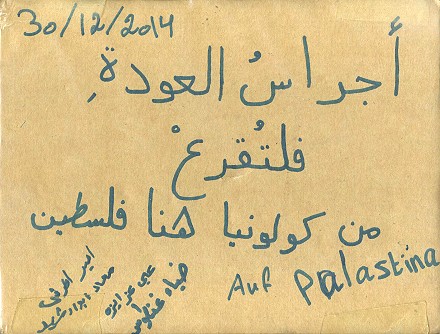 30/12/2014
أجراسُ العودةِ
فلتُقرعْ
من كولونيا هنا فلسطين
Auf Palastina
ضياء